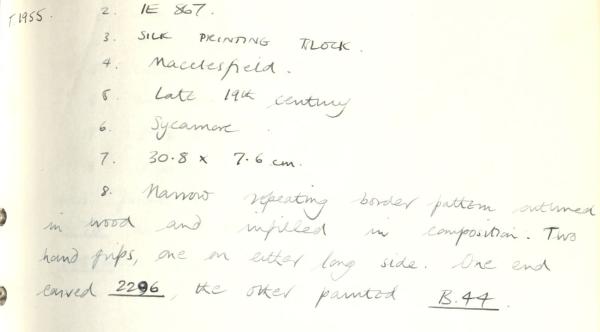 T1955. 2. IE 867.
3. SILK PRINTING BLOCK.
4. Macclesfield.
5. Late 19th century
6. Sycamore.
7. 30.8 x 7.6 cm.
8. Narrow repeating border pattern outlined
in wood and infilled in composition. Two
hand grips, one on either long side. One end
carved 2296, the other painted B.44.